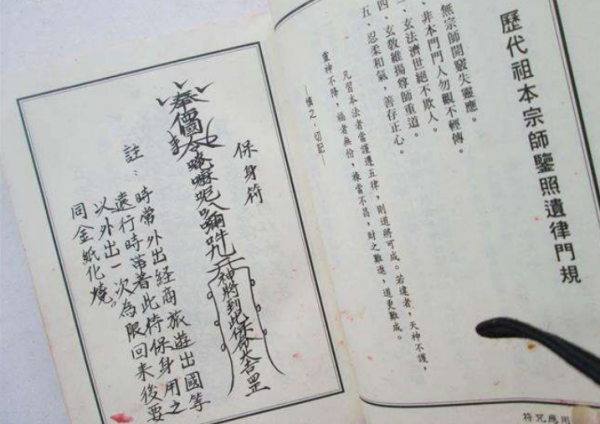 歷代祖本宗師鑒照遺律門規
無宗師開竅失靈應。
、非本門門人勿觀不輕傳。
、玄法濟世絕不欺人。
四、玄敎維揚尊師重道。
五、忍柔和氣，善存正心。
凡習本法者當謹遵五律，則道將可成。若違者，天神不護，
靈神不降，福者無份，祿當不昌，財之難進，道更難成。
——慎之．切記——
用應咒符
保身符
奉
神將到此保命
註：時常外出経商旅遊出國等
遠行時带著此符保身用之
以外出一次為限回来後要
同金紙化燒。